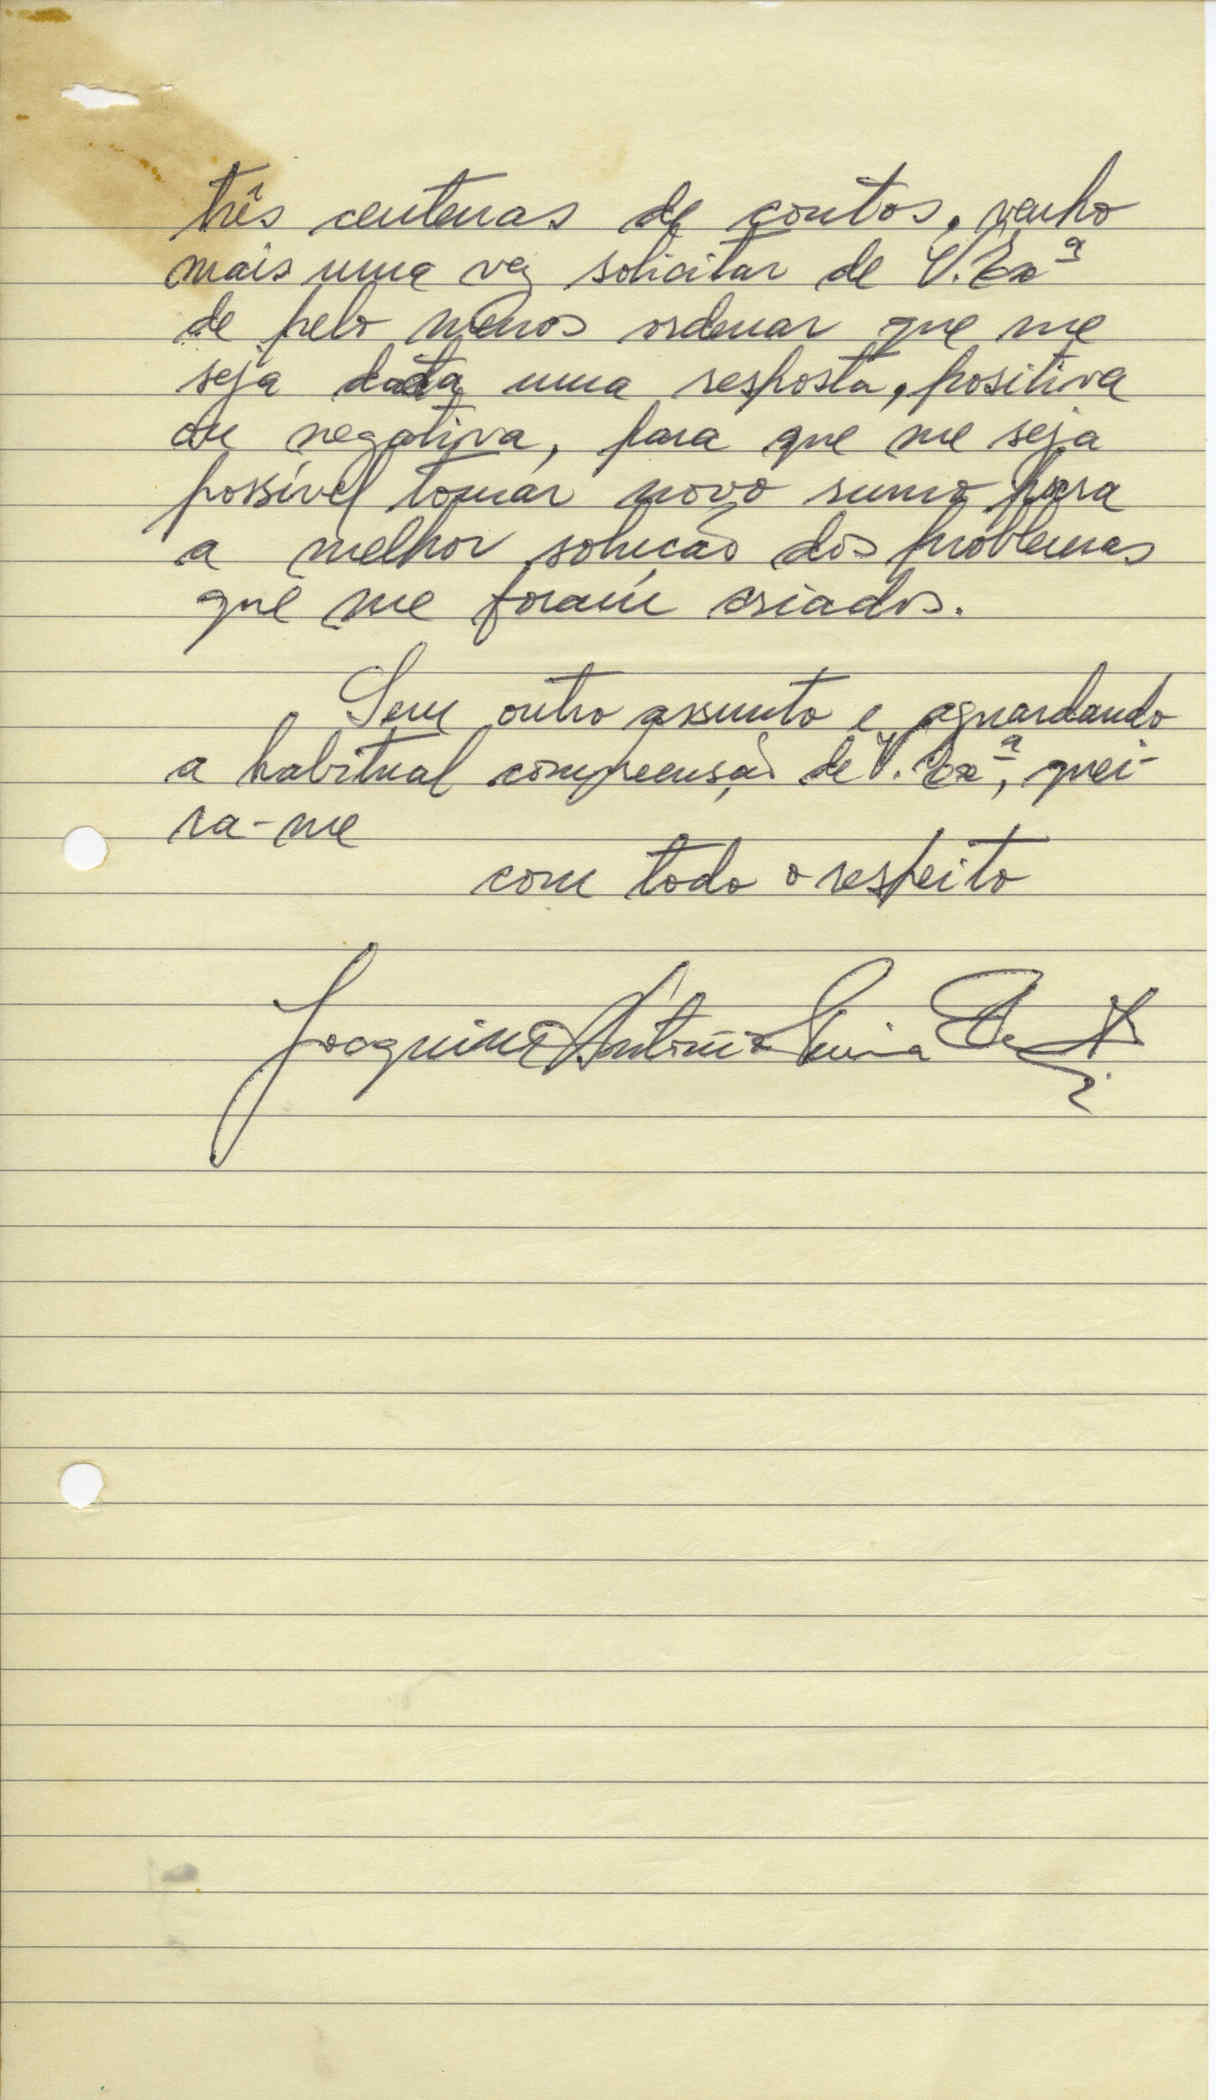 três centenas de contos, venho
mais uma vez solicitar de V. Exª
de pelo menos ordenar que me
seja dada uma resposta, positiva
ou negativa, para que me seja
possível tomar novo rumo para
a melhor solução dos problemas
que me foram criados.
Sem outro assunto e aguardando
a habitual compreensão de V. Exª, quei-
ra-me
com todo o respeito
Joaquim António